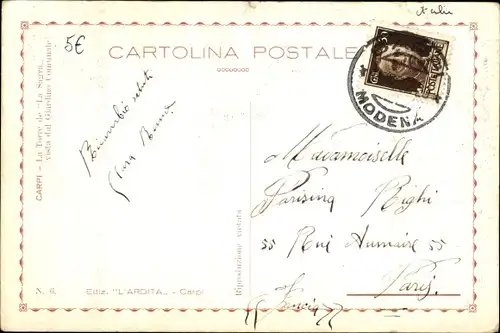 Italie
5€
CARTOLINA POSTALE
MODENA
CARPI - La Torre de "La Sagra„
vista dal Giardino Comunale
Ricambio saluti
Mademoiselle
Parising Righi
55 Rue Aumaire 55
Paris
(Francia)
Riproduzione vietata
N. 6. Ediz. "L'ARDITA„ - Carpi